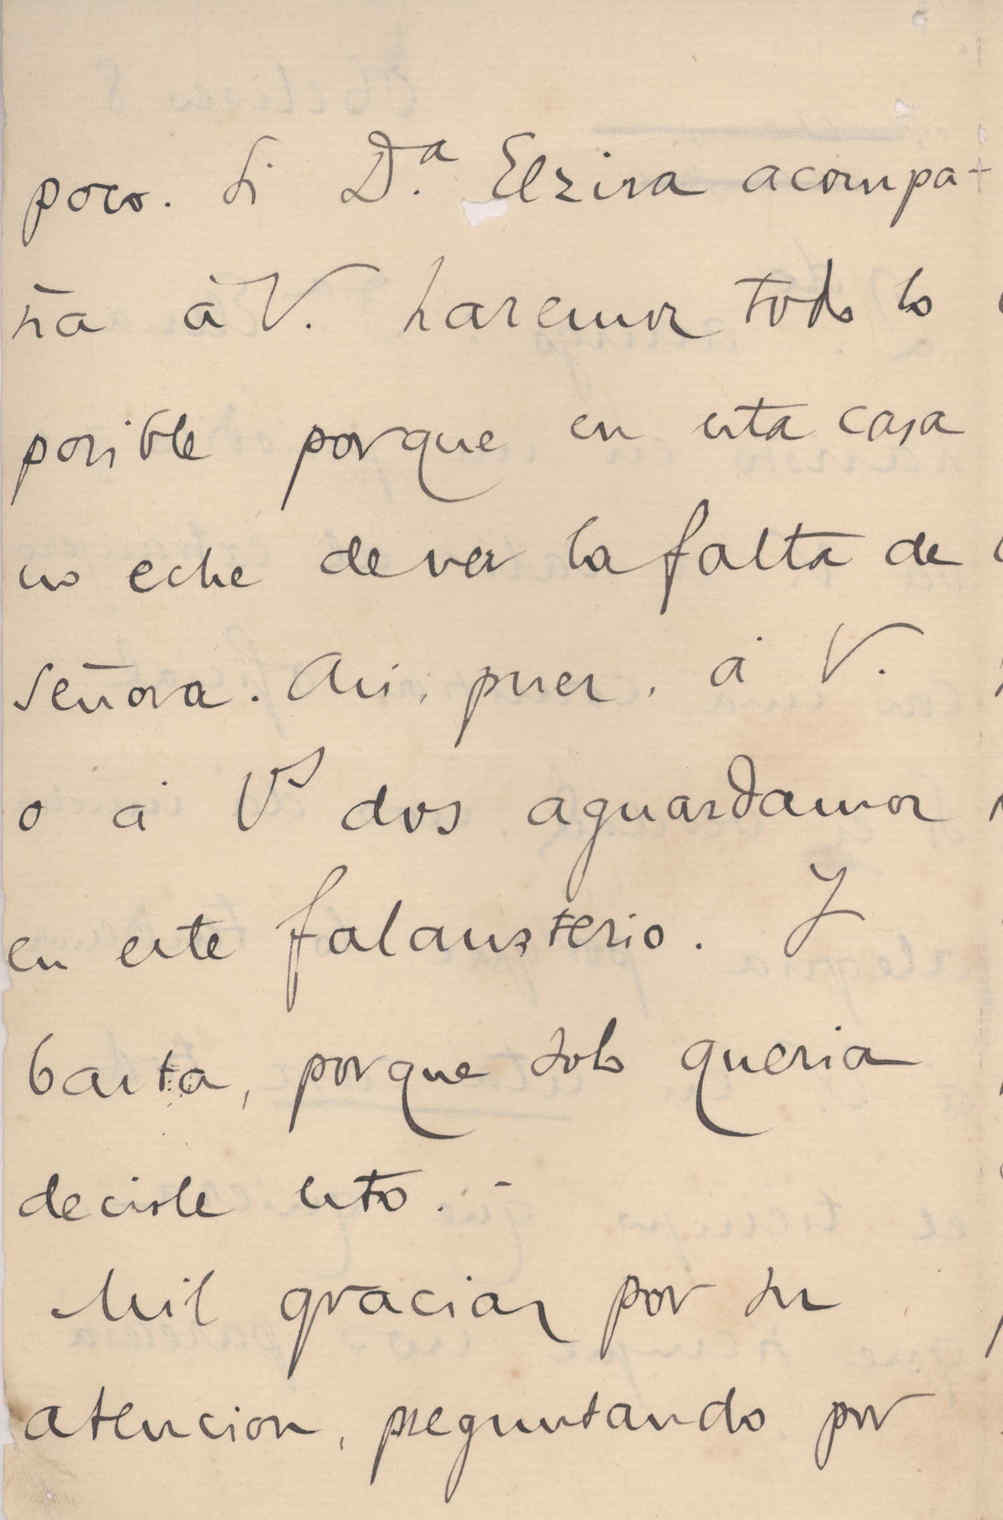 poco. Si D.ª Elzira acompa-
ña á V. haremos todo lo
posible porque en esta casa
no eche de ver la falta de
señora. Asi, pues, á V.
o á Vs dos aguardamos
en este falansterio. Y
basta, porque solo queria
decirle esto. -
Mil gracias por su
atencion, preguntando por